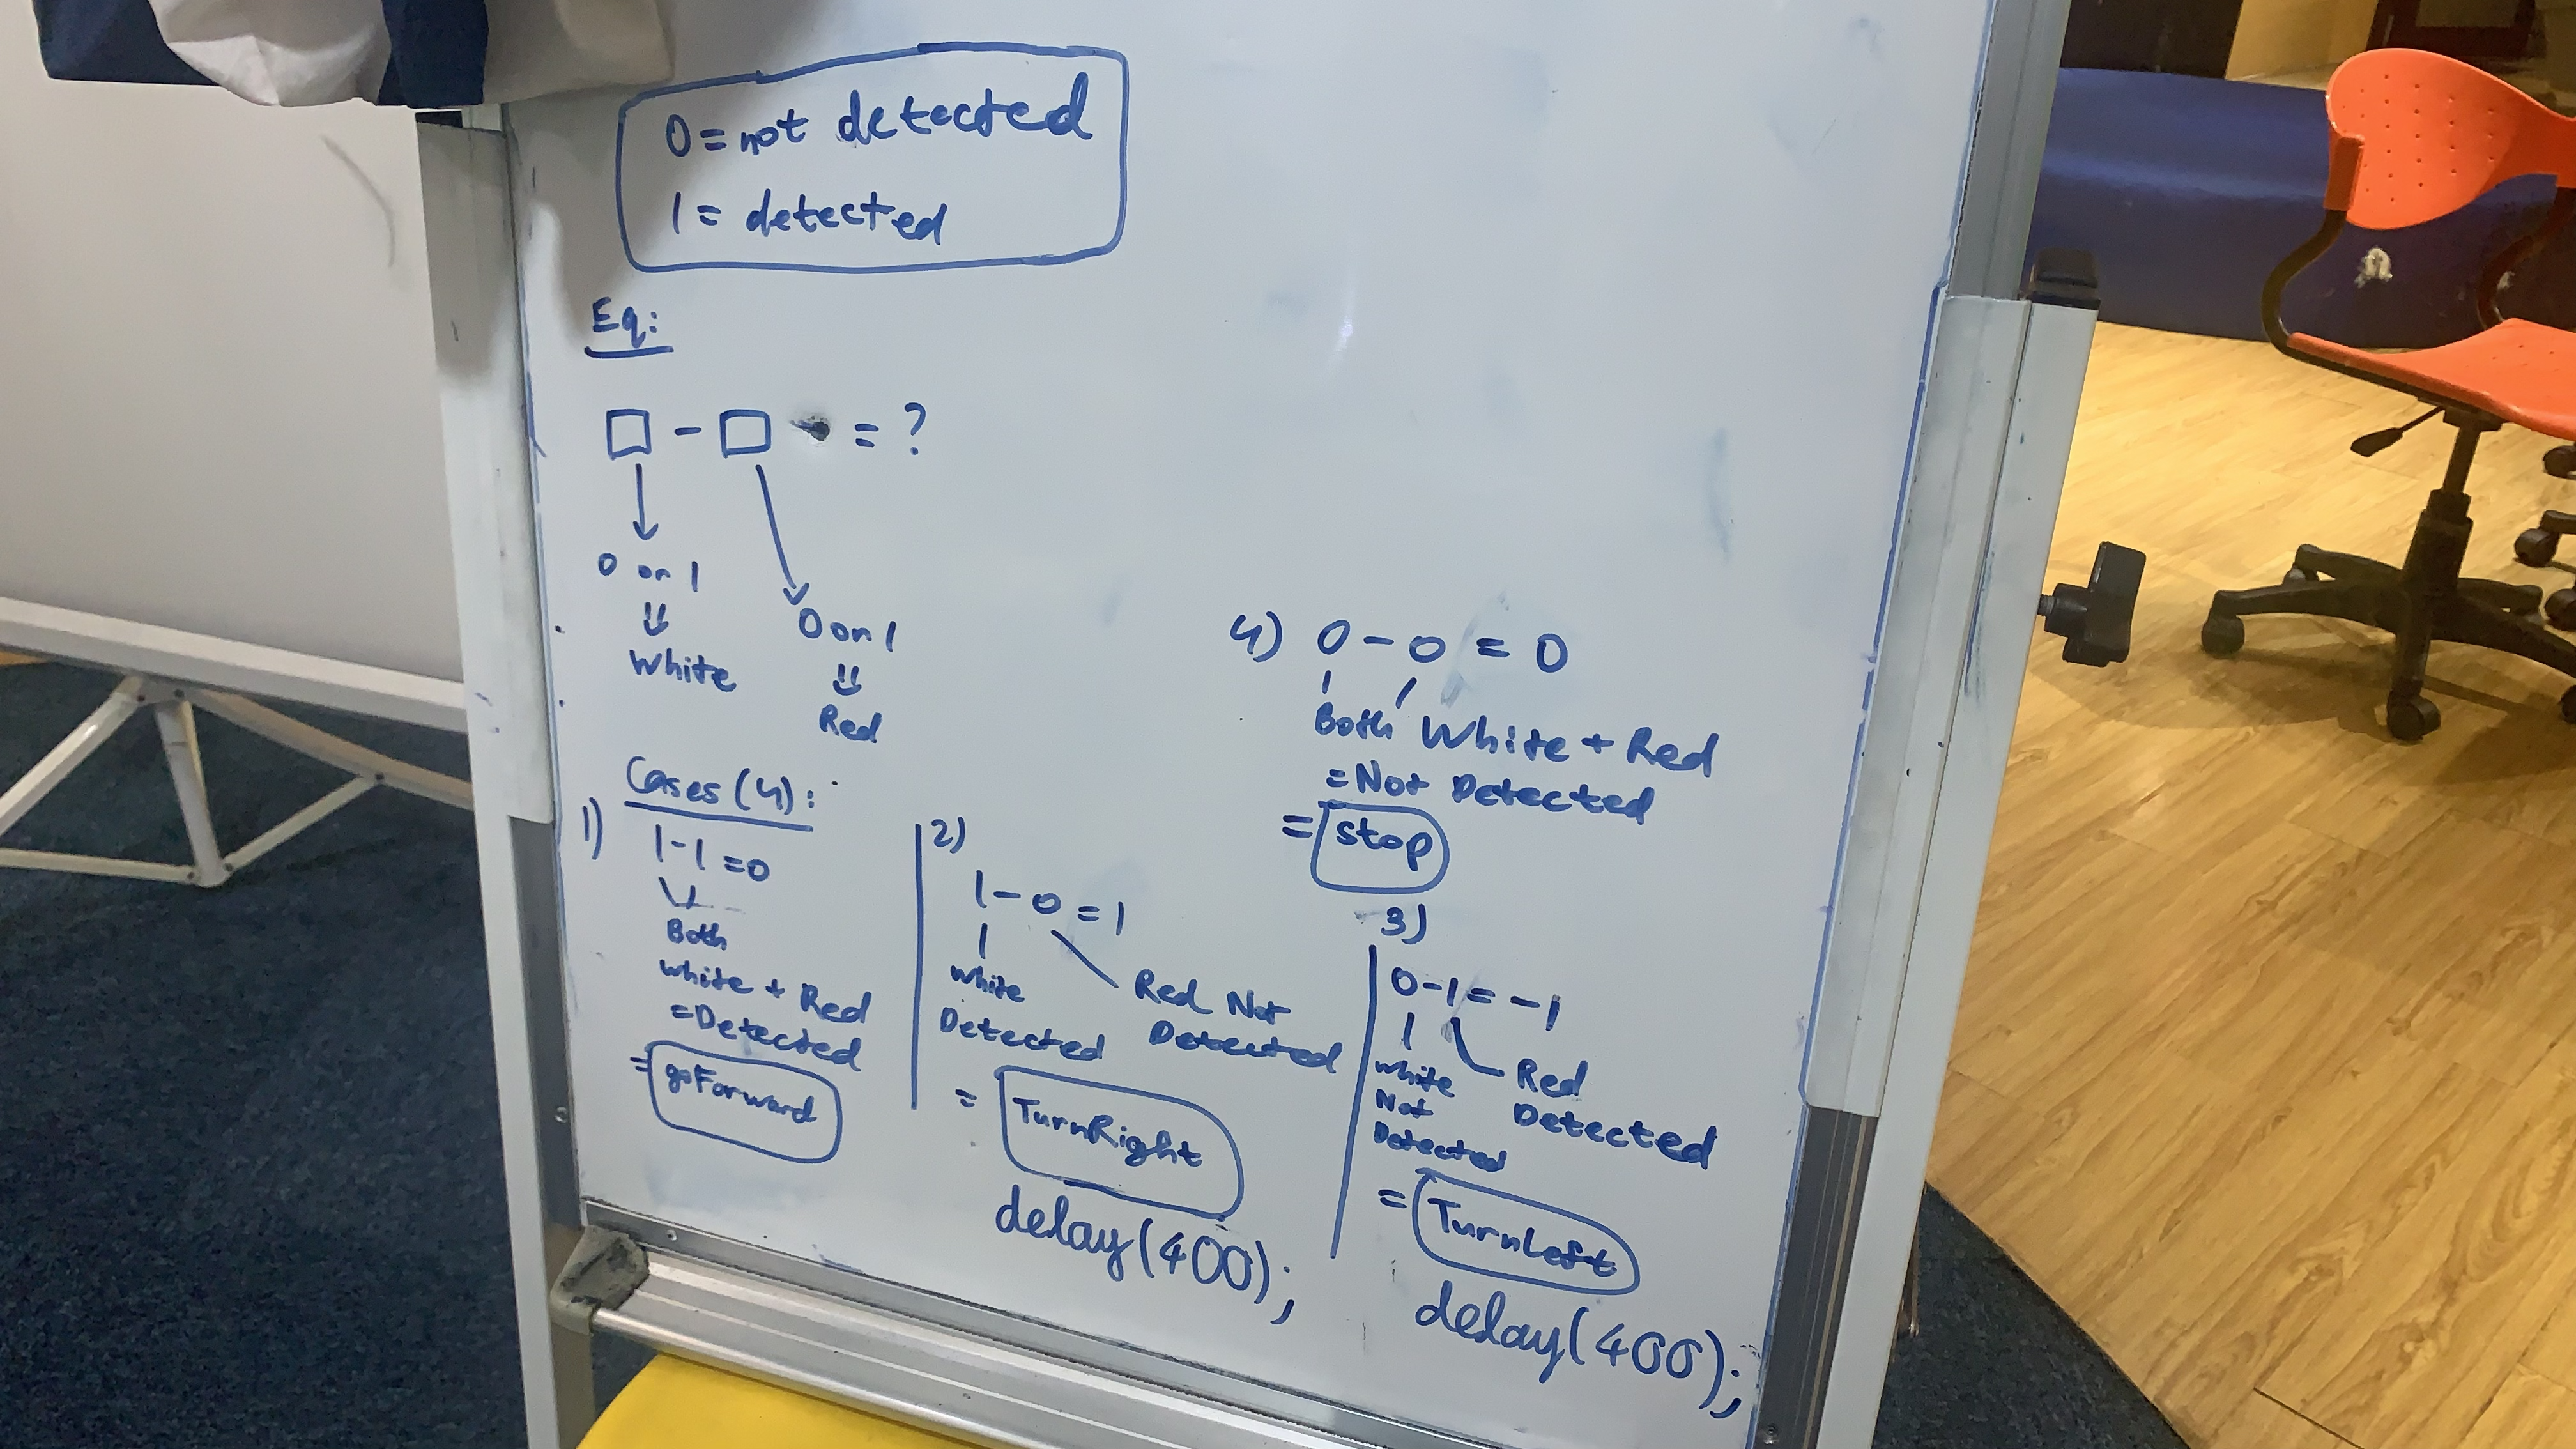 0 = not detected
1 = detected
Eq:
□ - □ = ?
0 or 1
White
0 or 1
Red
Cases (4):
1)
1-1 = 0
Both
white + Red
= Detected
= goForward
2)
1 - 0 = 1
white
Detected
Red Not
Detected
= TurnRight
delay(400);
4) 0 - 0 = 0
Both White + Red
= Not Detected
= stop
3)
0-1 = -1
white
Not
Detected
Red
Detected
= TurnLeft
delay(400);